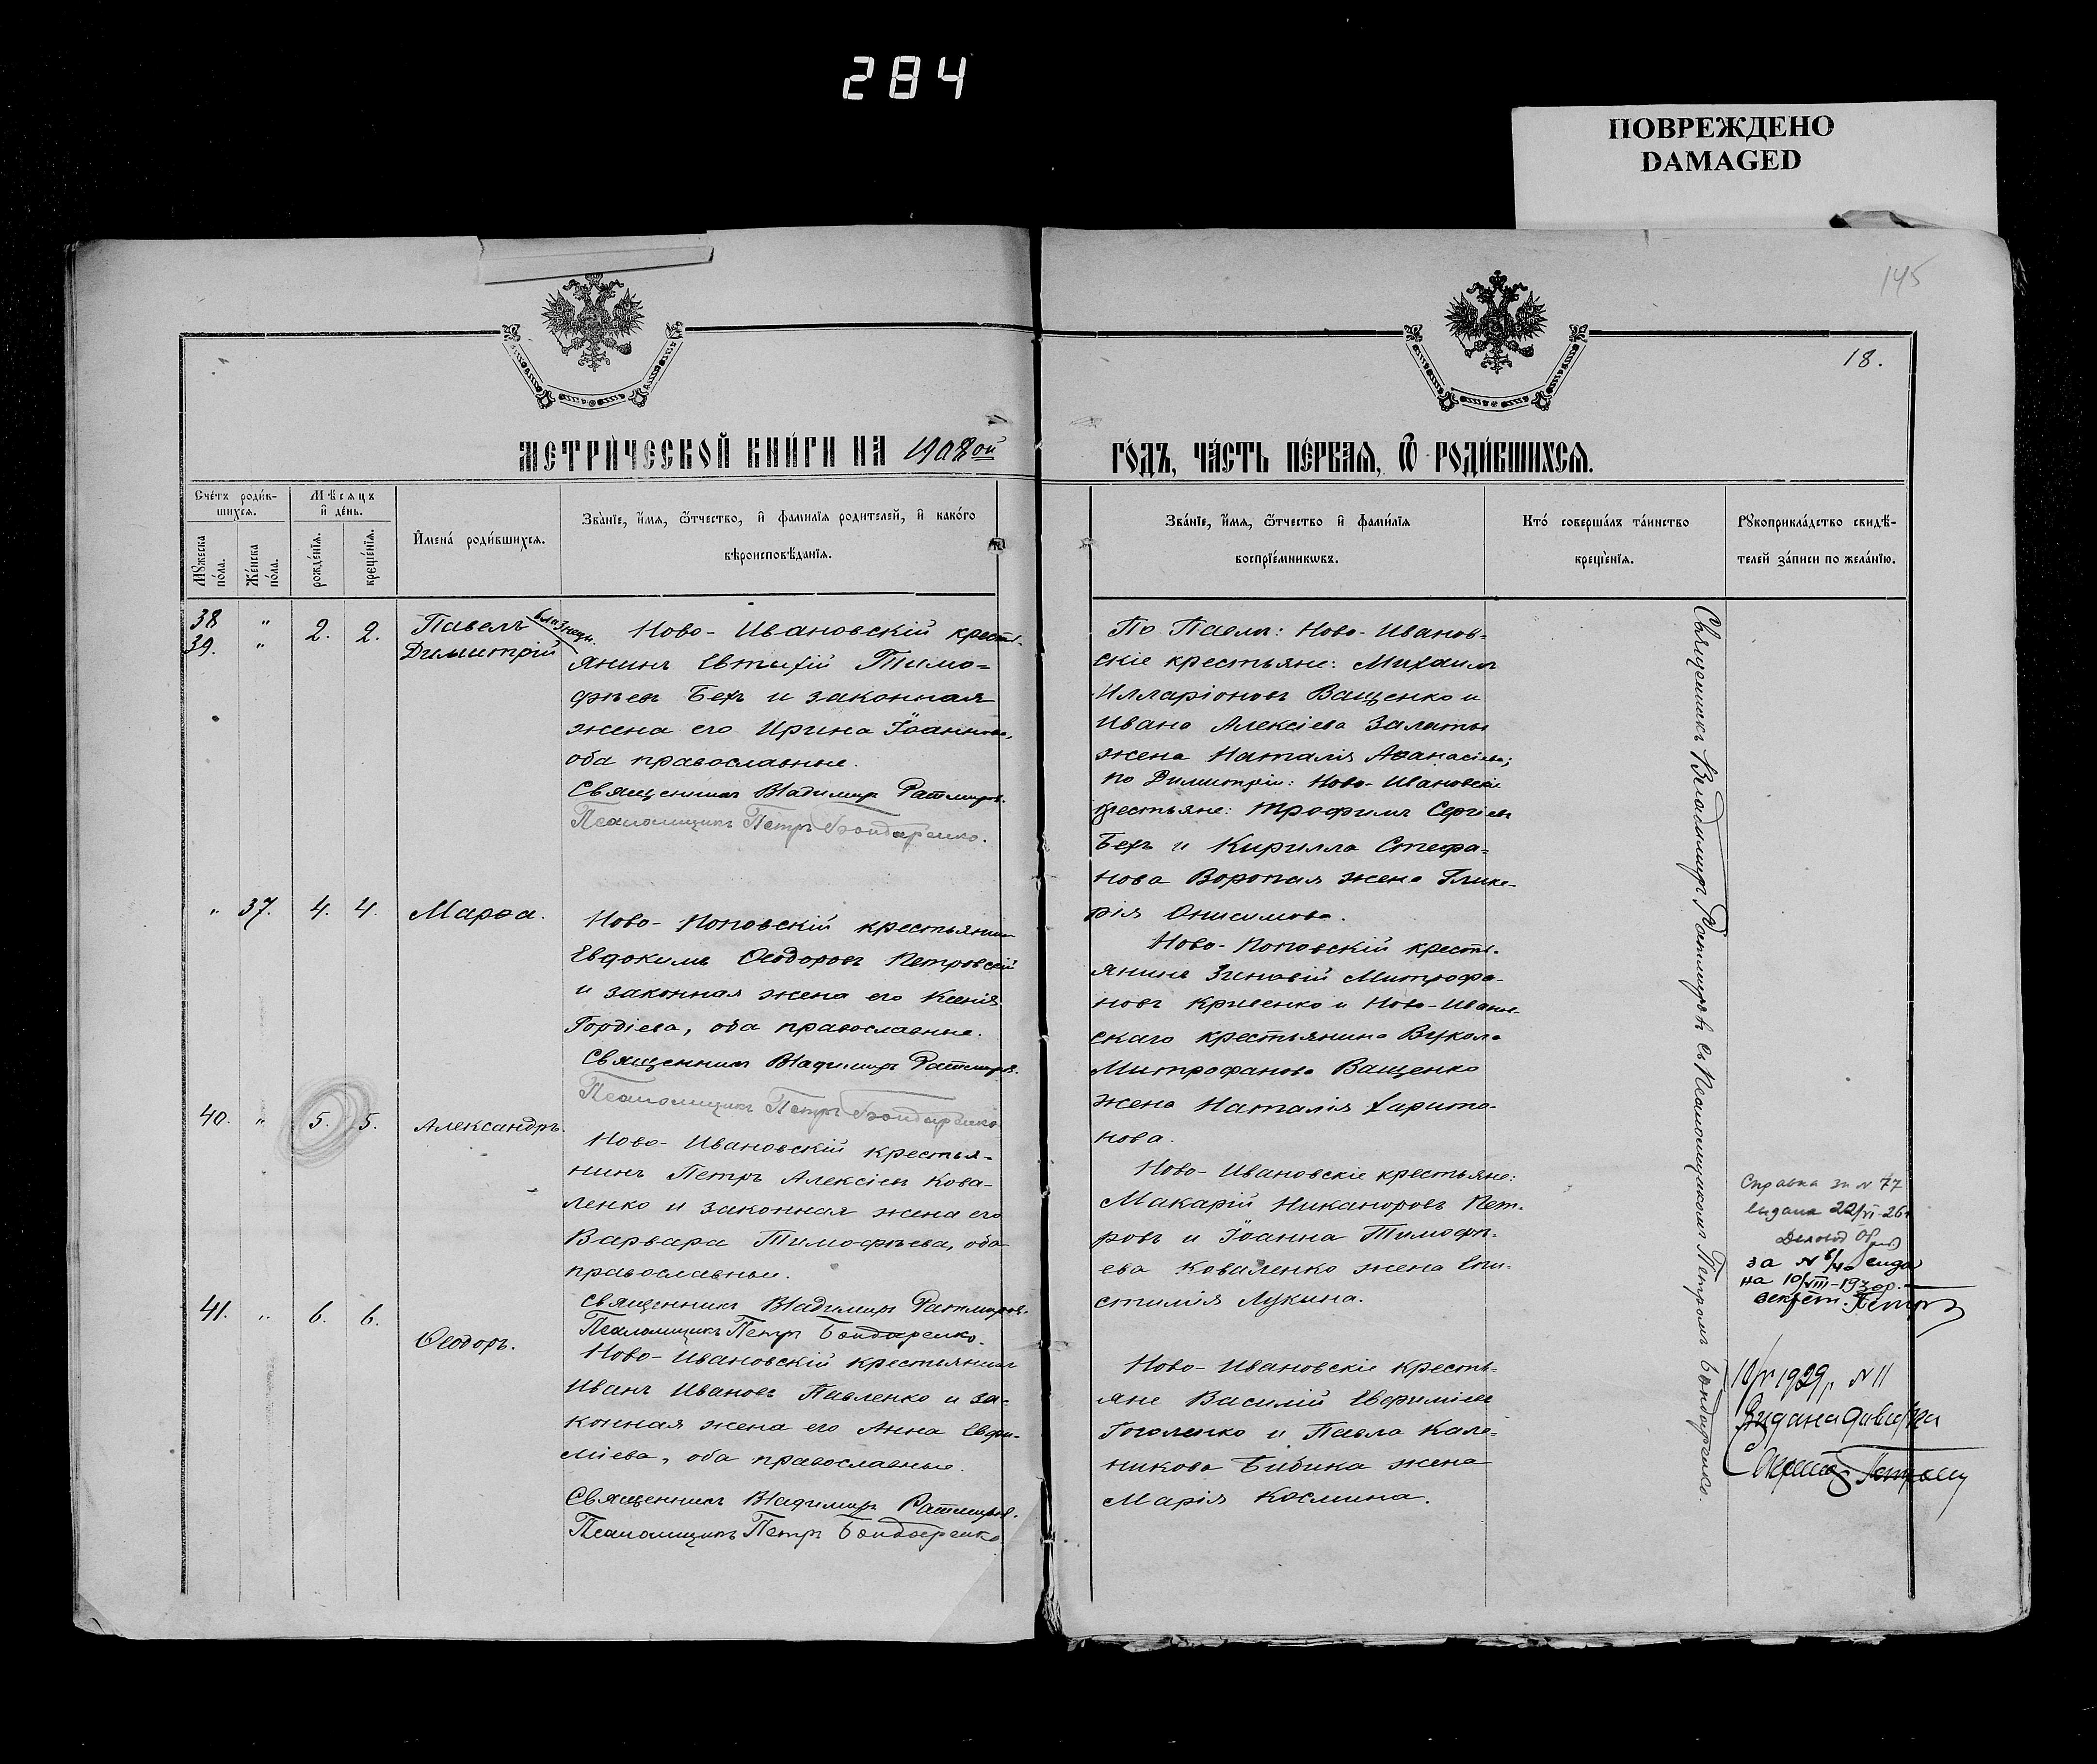 284
ПОВРЕЖДЕНО
DAMAGED
145
18.
МЕТРИ́ЧЕСКОЙ КНИ́ГИ НА 1908ой
ГО́ДЪ, ЧА́СТЬ ПЕ́РВАЯ, Ѿ РОДИ́ВШИХСЯ.
Сче́тъ роди́в-
шихся.
Мѣсяцъ
и҆ де́нь.
Мꙋжеска
по́ла.
Же́нска
по́ла.
рожде́нїя.
креще́нїя.
И҆мена̀ роди́вшихся.
Зва́нїе, и҆́мя, ѻ҆́тчество, и҆ фами́лїя родителей, и҆ како́го
вѣроисповѣ́данїя.
Зва́нїе, и҆́мя, ѻ҆́тчество и҆ фами́лїя
воспрїе́мникѡвъ.
Кто́ соверша́лъ та́инство
креще́нїя.
Рꙋкоприкла́дство свидѣ́-
телей за́писи по жела́нїю.
38 " 2. 2. Павелъ близнецы
39. " Димитрій
Ново-Ивановскій кресть-
янинъ Евтихій Тимо-
фѣевъ Бехъ и законная
жена его Ирина Іоаннова,
оба православные.
Священникъ Владимиръ Ратмировъ.
Псаломщикъ Петръ Бондаренко.
По Павлѣ: Ново-Иванов-
скіе крестьяне: Михаилъ
Илларіоновъ Ващенко и
Ивана Алексіева Залаты
жена Наталія Аѳанасіева;
по Димитріи: Ново-Ивановскіе
крестьяне: Трофимъ Сергіевъ
Бехъ и Кирилла Стефа-
нова Воропая жена Глике-
рія Онисимова.
" 37. 4. 4. Марѳа.
Ново-Поповскій крестьянинъ
Евдокимъ Ѳеодоровъ Петровскій
и законная жена его Ксенія
Гордіева, оба православные.
Священникъ Владимиръ Ратмировъ.
Псаломщикъ Петръ Бондаренко
Ново-Поповскій кресть-
янинъ Зиновій Митрофа-
новъ Кривенко и Ново-Иванов-
скаго крестьянина Вукола
Митрофанова Ващенко
жена Наталія Харито-
нова.
40. " 5. 5. Александръ.
Ново-Ивановскій крестья-
нинъ Петръ Алексіевъ Кова-
ленко и законная жена его
Варвара Тимофѣева, оба
православные.
Священникъ Владимиръ Ратмировъ.
Псаломщикъ Петръ Бондаренко.
Ново-Ивановскіе крестьяне:
Макарій Никаноровъ Пет-
ровъ и Іоанна Тимофѣ-
ева Коваленко жена Епи-
стилія Лукина.
Справка за №77
видана 22/VI-26
за №
на 10/VIII-193
Секрет.
41. " 6. 6. Ѳеодоръ.
Ново-Ивановскій крестьянинъ
Иванъ Ивановъ Павленко и за-
конная жена его Анна Евфи-
міева, оба православные.
Священникъ Владимиръ Ратмировъ.
Псаломщикъ Петръ Бондаренко
Ново-Ивановскіе кресть-
яне Василій Евфиміевъ
Гоголенко и Павла Кале-
никова Бибика жена
Марія Космина.
1929 №11
Видана довідка
Священникъ Владимиръ Ратмировъ съ Псаломщикомъ Петромъ Бондаренко.